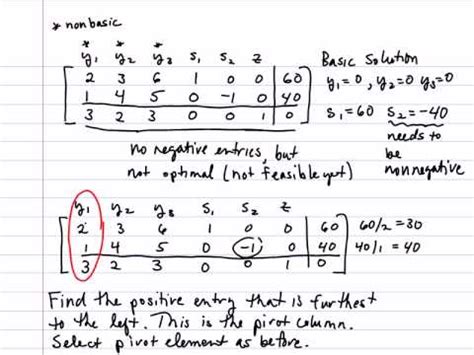 * nonbasic
* * *
y₁ y₂ y₃ s₁ s₂ z
2 3 6 1 0 0 60
1 4 5 0 -1 0 40
3 2 3 0 0 1 0
Basic Solution
y₁=0, y₂=0 y₃=0
s₁=60 s₂=-40
needs to
be
nonnegative
no negative entries, but
not optimal (not feasible yet)
y₁ y₂ y₃ s₁ s₂ z
2 3 6 1 0 0 60 60/2 = 30
1 4 5 0 -1 0 40 40/1 = 40
3 2 3 0 0 1 0
Find the positive entry that is furthest
to the left. This is the pivot column.
Select pivot element as before.